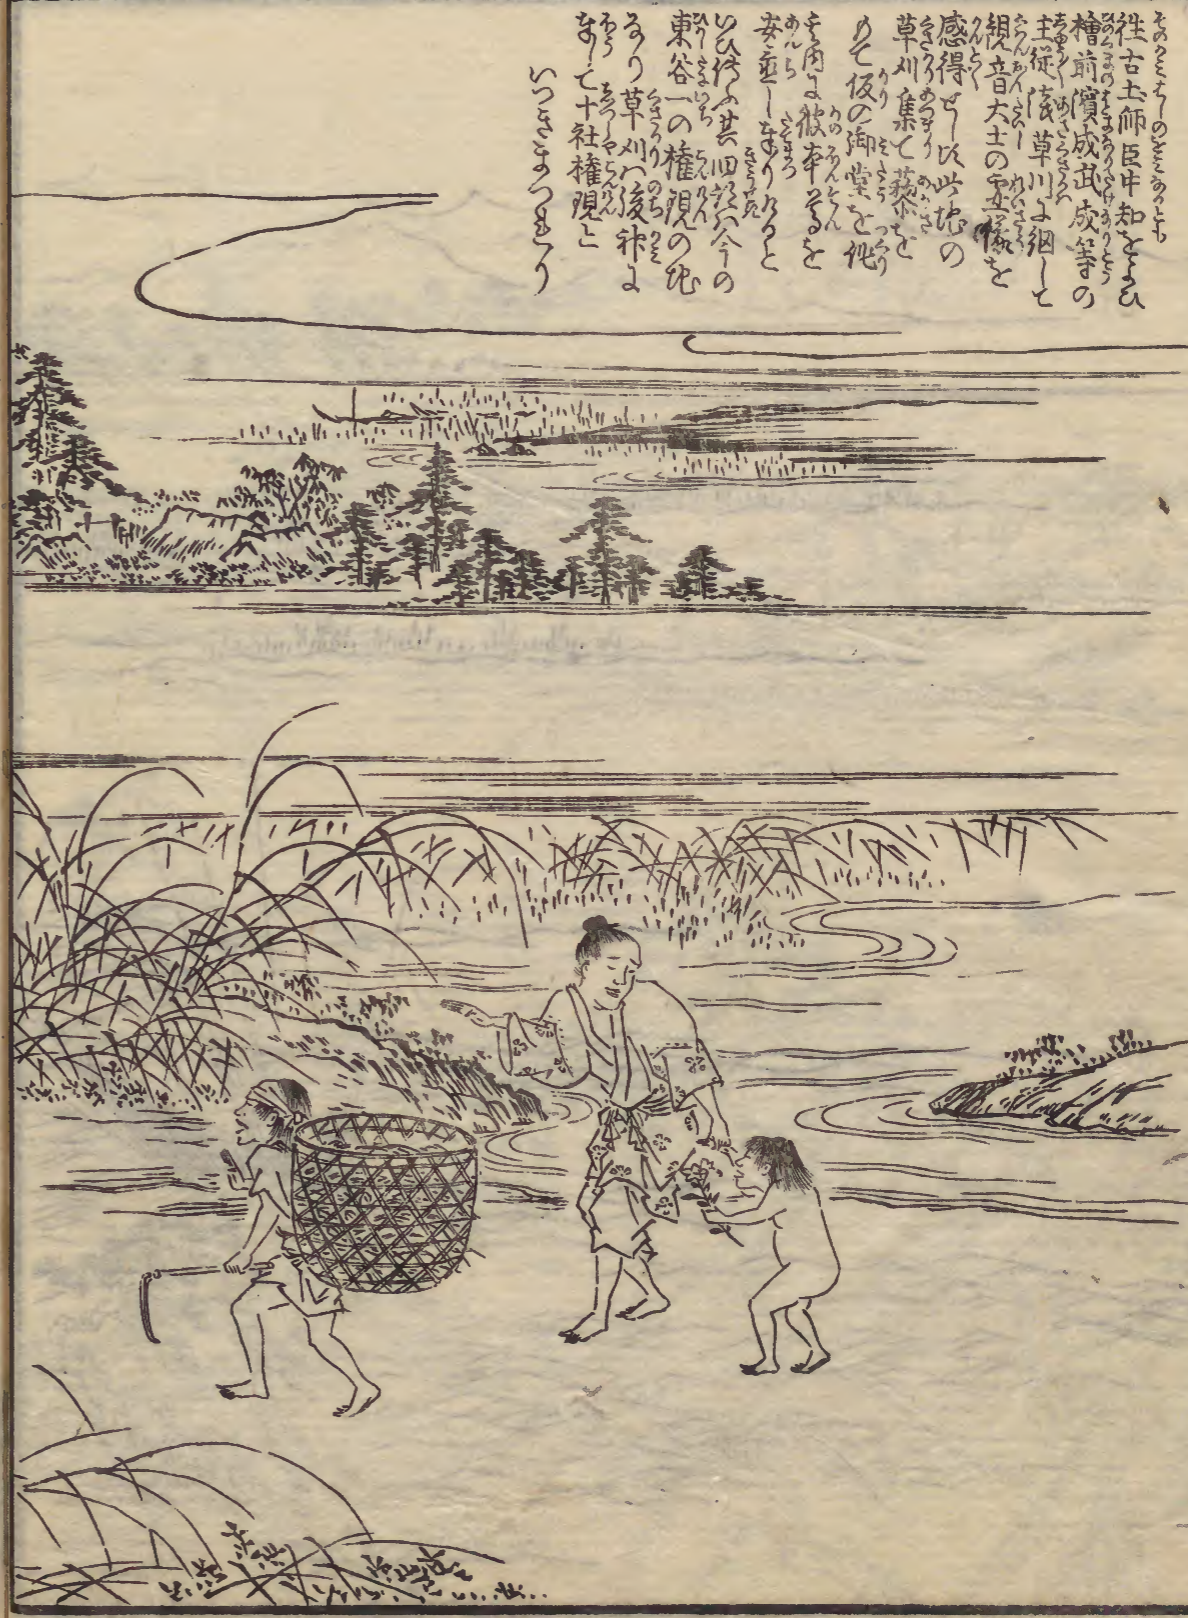 往古土師臣中知をよひ
檜前濱成武成等の
主従浅草川に網して
観音大士の霊像を
感得せし頃此地の
草刈集て藜を
もて仮の御堂を作り
其内に彼本尊を
安置し奉りけると
いひ伝ふ其旧跡ハ今の
東谷一の権現の地
なり草刈ハ後神に
奉して十社権現と
いつきまつれり